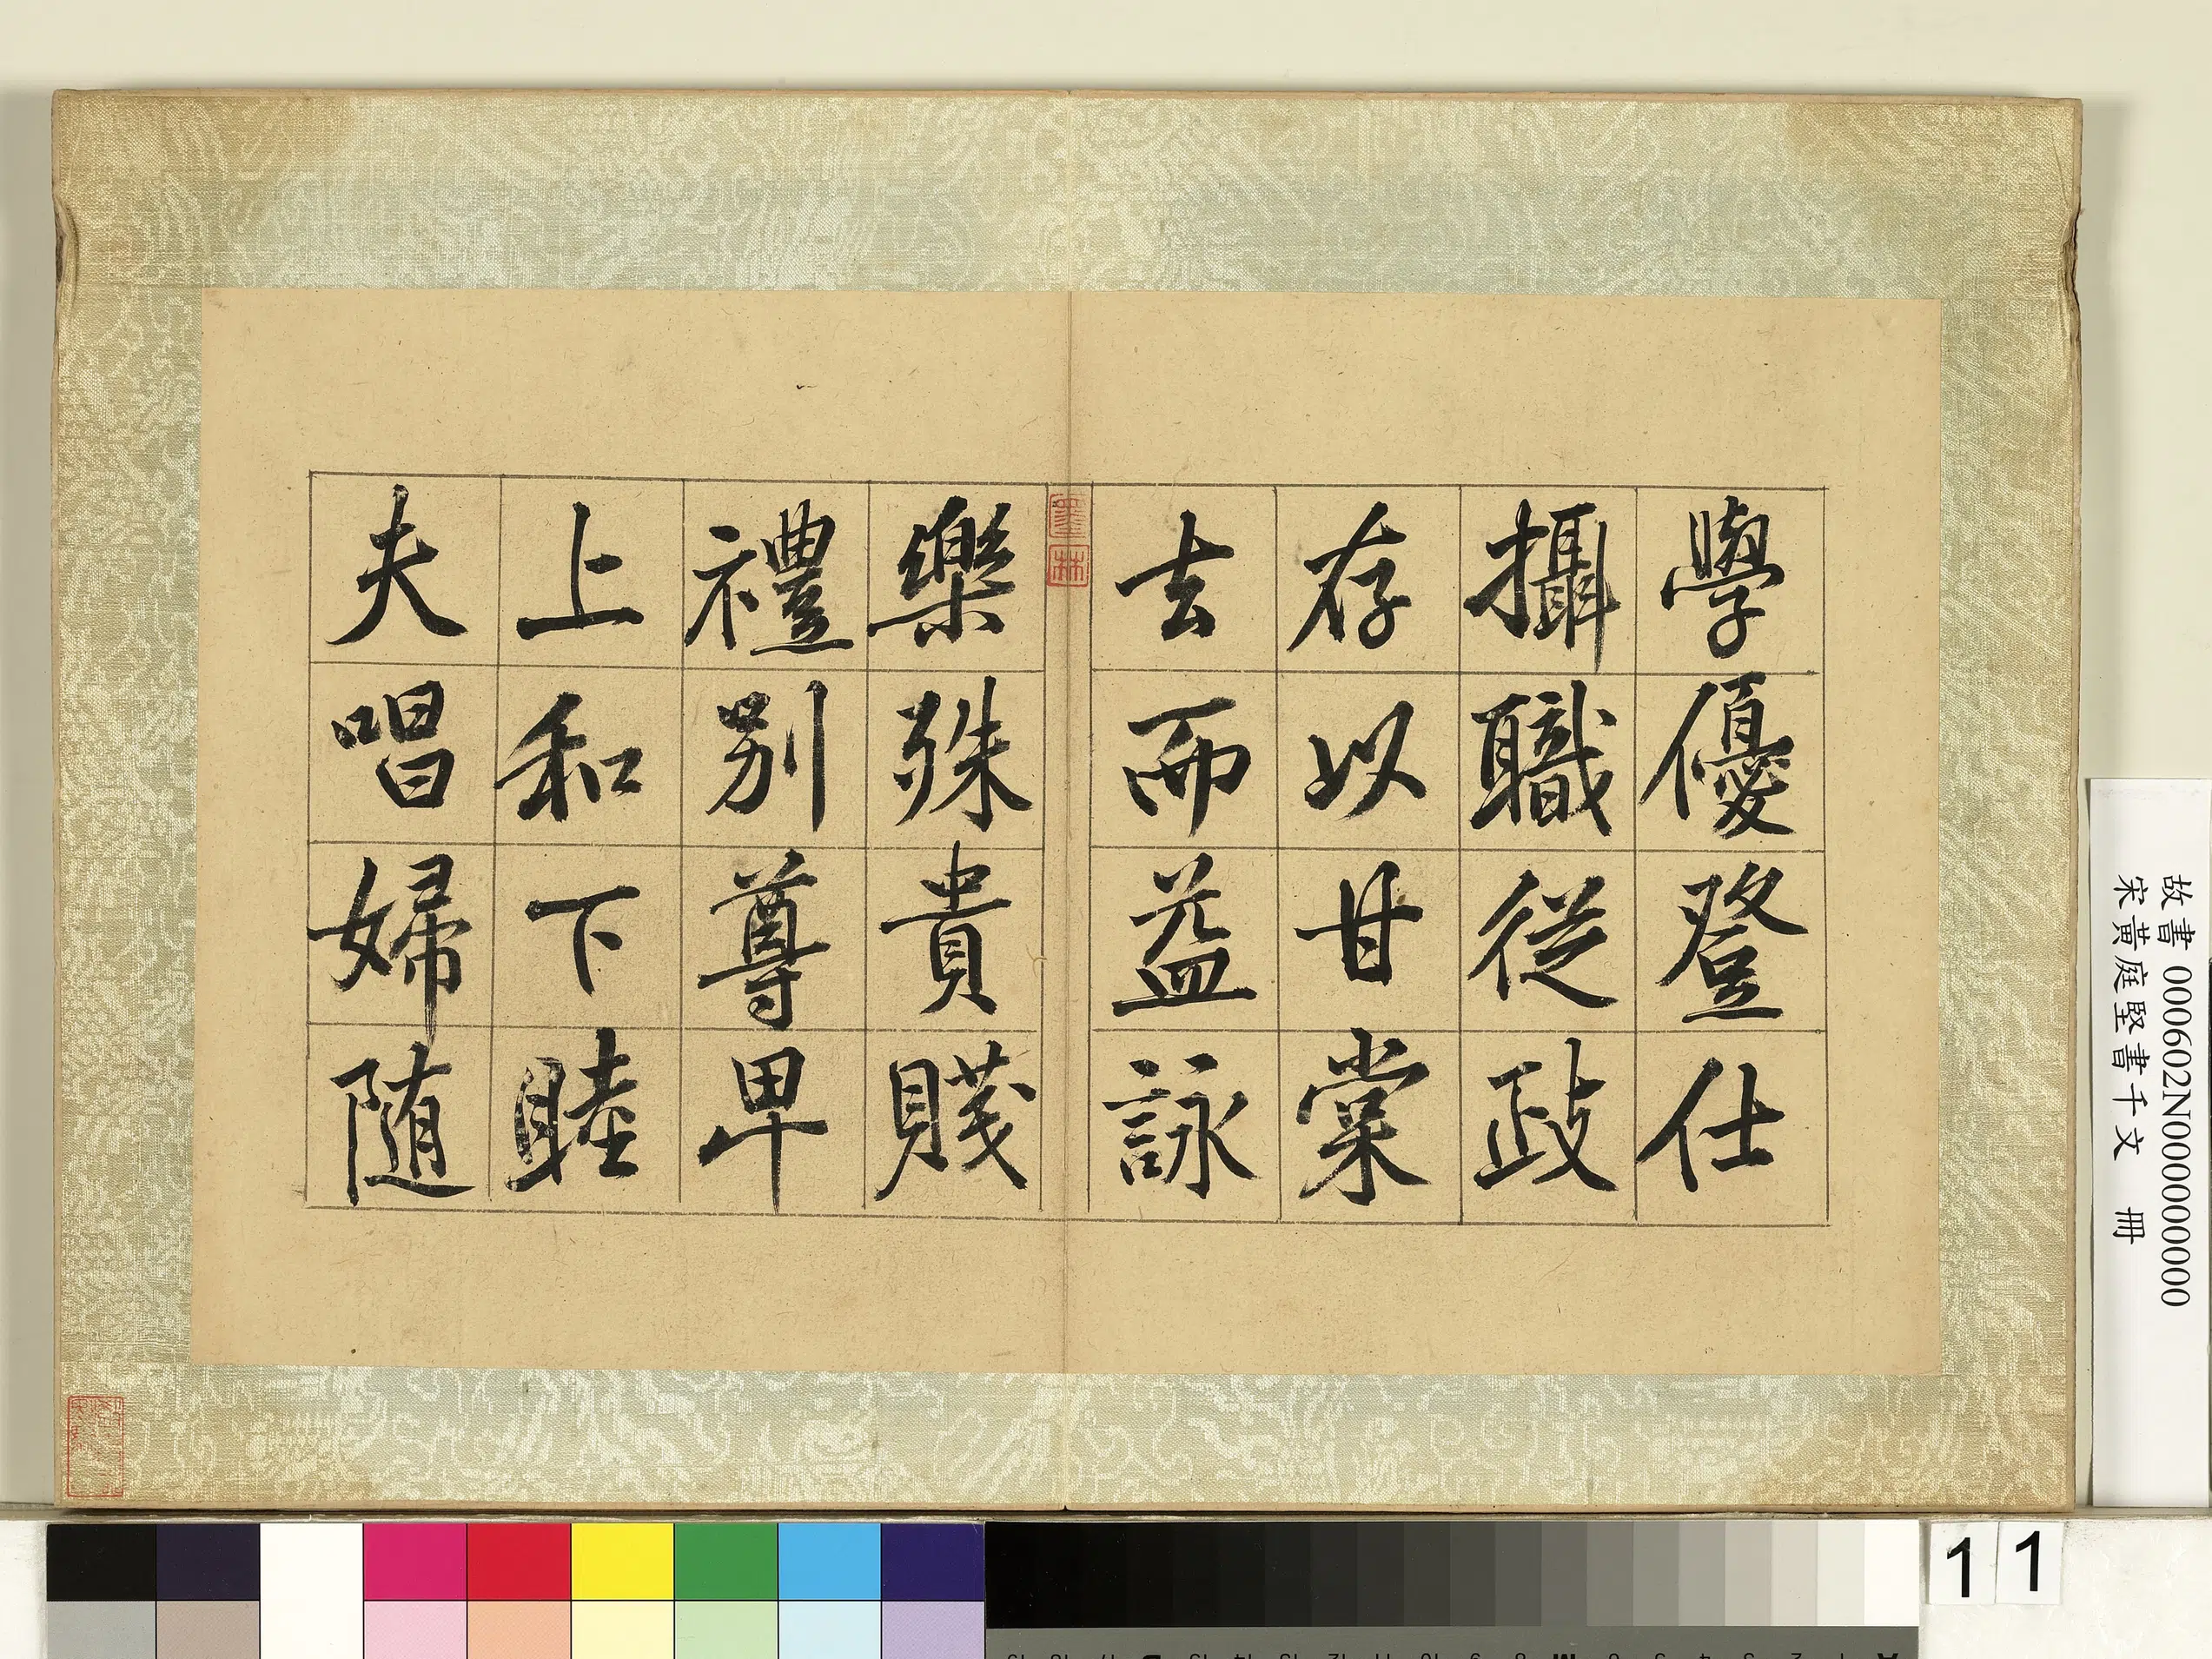 學優登仕
攝職從政
存以甘棠
去而益詠
樂殊貴賤
禮別尊卑
上和下睦
夫唱婦随
墨
林
故書 000602N000000000
宋黃庭堅書千文 冊
11